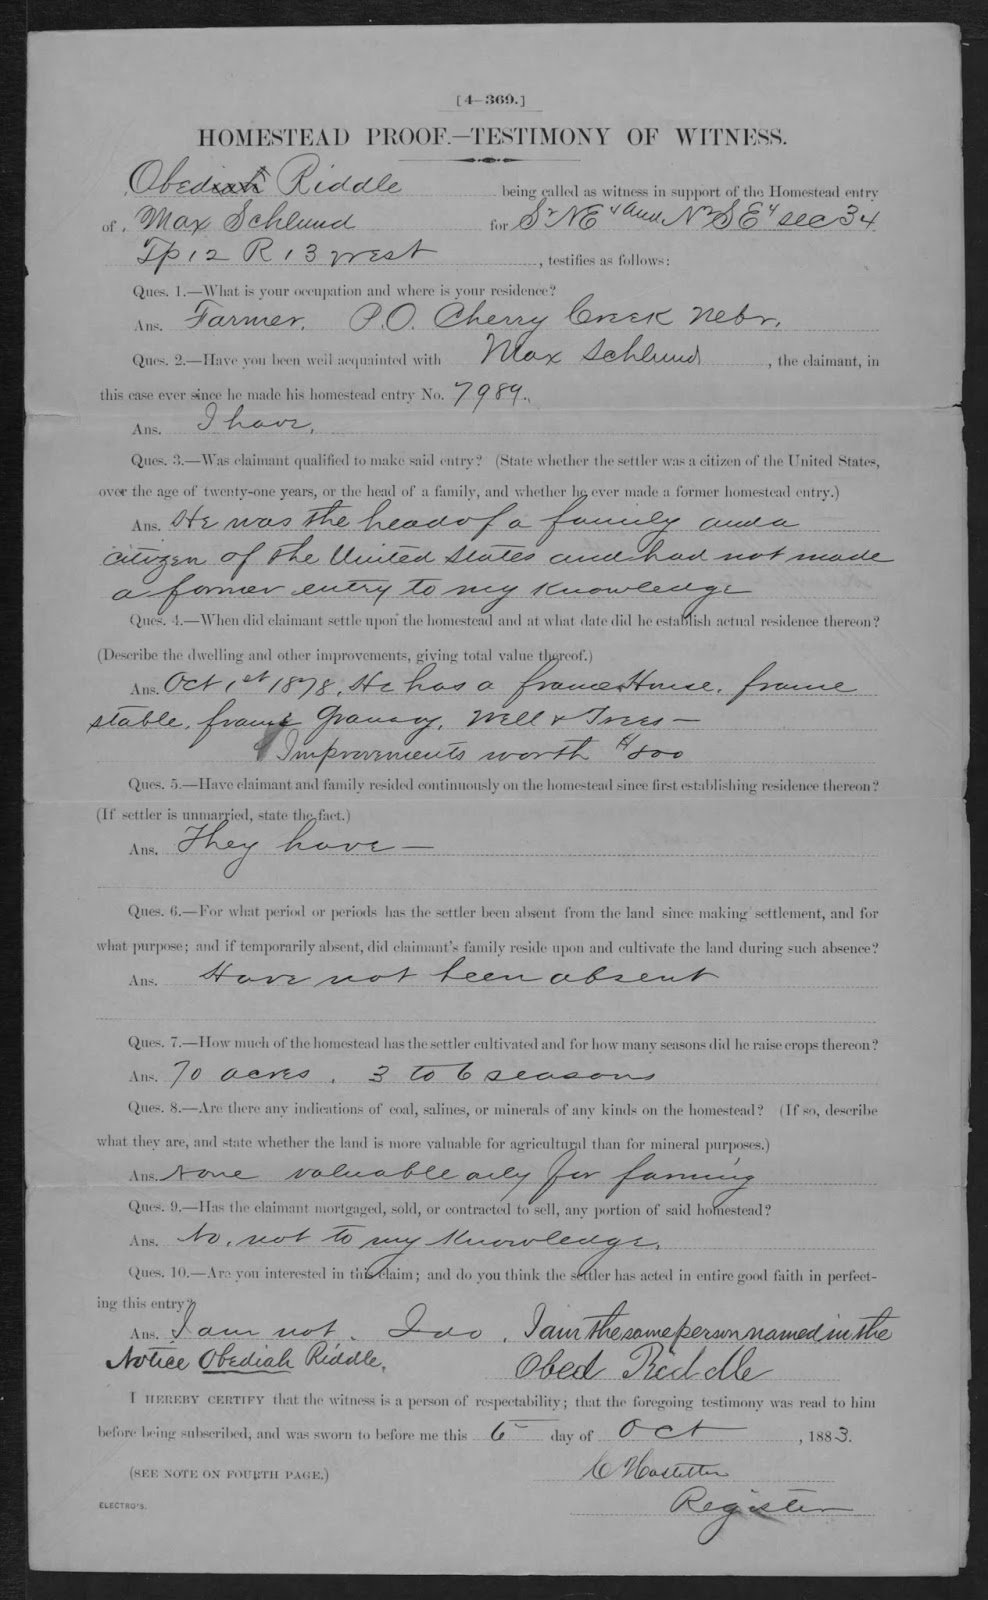 [4—369.]
HOMESTEAD PROOF.—TESTIMONY OF WITNESS.
Obediah Riddle being called as witness in support of the Homestead entry
of Max Schlund for S½ NE4 and N½ SE4 sec 34
Tp 12 R 13 West, testifies as follows:
Ques. 1.—What is your occupation and where is your residence?
Ans. Farmer. P.O. Cherry Creek Nebr.
Ques. 2.—Have you been well acquainted with Max Schlund, the claimant, in
this case ever since he made his homestead entry No. 7989.
Ans. I have.
Ques. 3.—Was claimant qualified to make said entry? (State whether the settler was a citizen of the United States,
over the age of twenty-one years, or the head of a family, and whether he ever made a former homestead entry.)
Ans. He was the head of a family and a
citizen of the United States and had not made
a former entry to my knowledge
Ques. 4.—When did claimant settle upon the homestead and at what date did he establish actual residence thereon?
(Describe the dwelling and other improvements, giving total value thereof.)
Ans. Oct 1st 1878. He has a frame House, frame
stable, frame Granary, Well & Trees—
Improvements worth $800
Ques. 5.—Have claimant and family resided continuously on the homestead since first establishing residence thereon?
(If settler is unmarried, state the fact.)
Ans. They have—
Ques. 6.—For what period or periods has the settler been absent from the land since making settlement, and for
what purpose; and if temporarily absent, did claimant's family reside upon and cultivate the land during such absence?
Ans. Have not been absent
Ques. 7.—How much of the homestead has the settler cultivated and for how many seasons did he raise crops thereon?
Ans. 70 acres. 3 to 6 seasons
Ques. 8.—Are there any indications of coal, salines, or minerals of any kinds on the homestead? (If so, describe
what they are, and state whether the land is more valuable for agricultural than for mineral purposes.)
Ans. None valuable only for farming
Ques. 9.—Has the claimant mortgaged, sold, or contracted to sell, any portion of said homestead?
Ans. No, not to my knowledge.
Ques. 10.—Are you interested in this claim; and do you think the settler has acted in entire good faith in perfect-
ing this entry?
Ans. I am not. I do. I am the same person named in the
Notice Obediah Riddle.
Obed Riddle
I HEREBY CERTIFY that the witness is a person of respectability; that the foregoing testimony was read to him
before being subscribed, and was sworn to before me this 6 day of Oct, 1883.
(SEE NOTE ON FOURTH PAGE.) C Hostetter
ELECTRO'S. Register